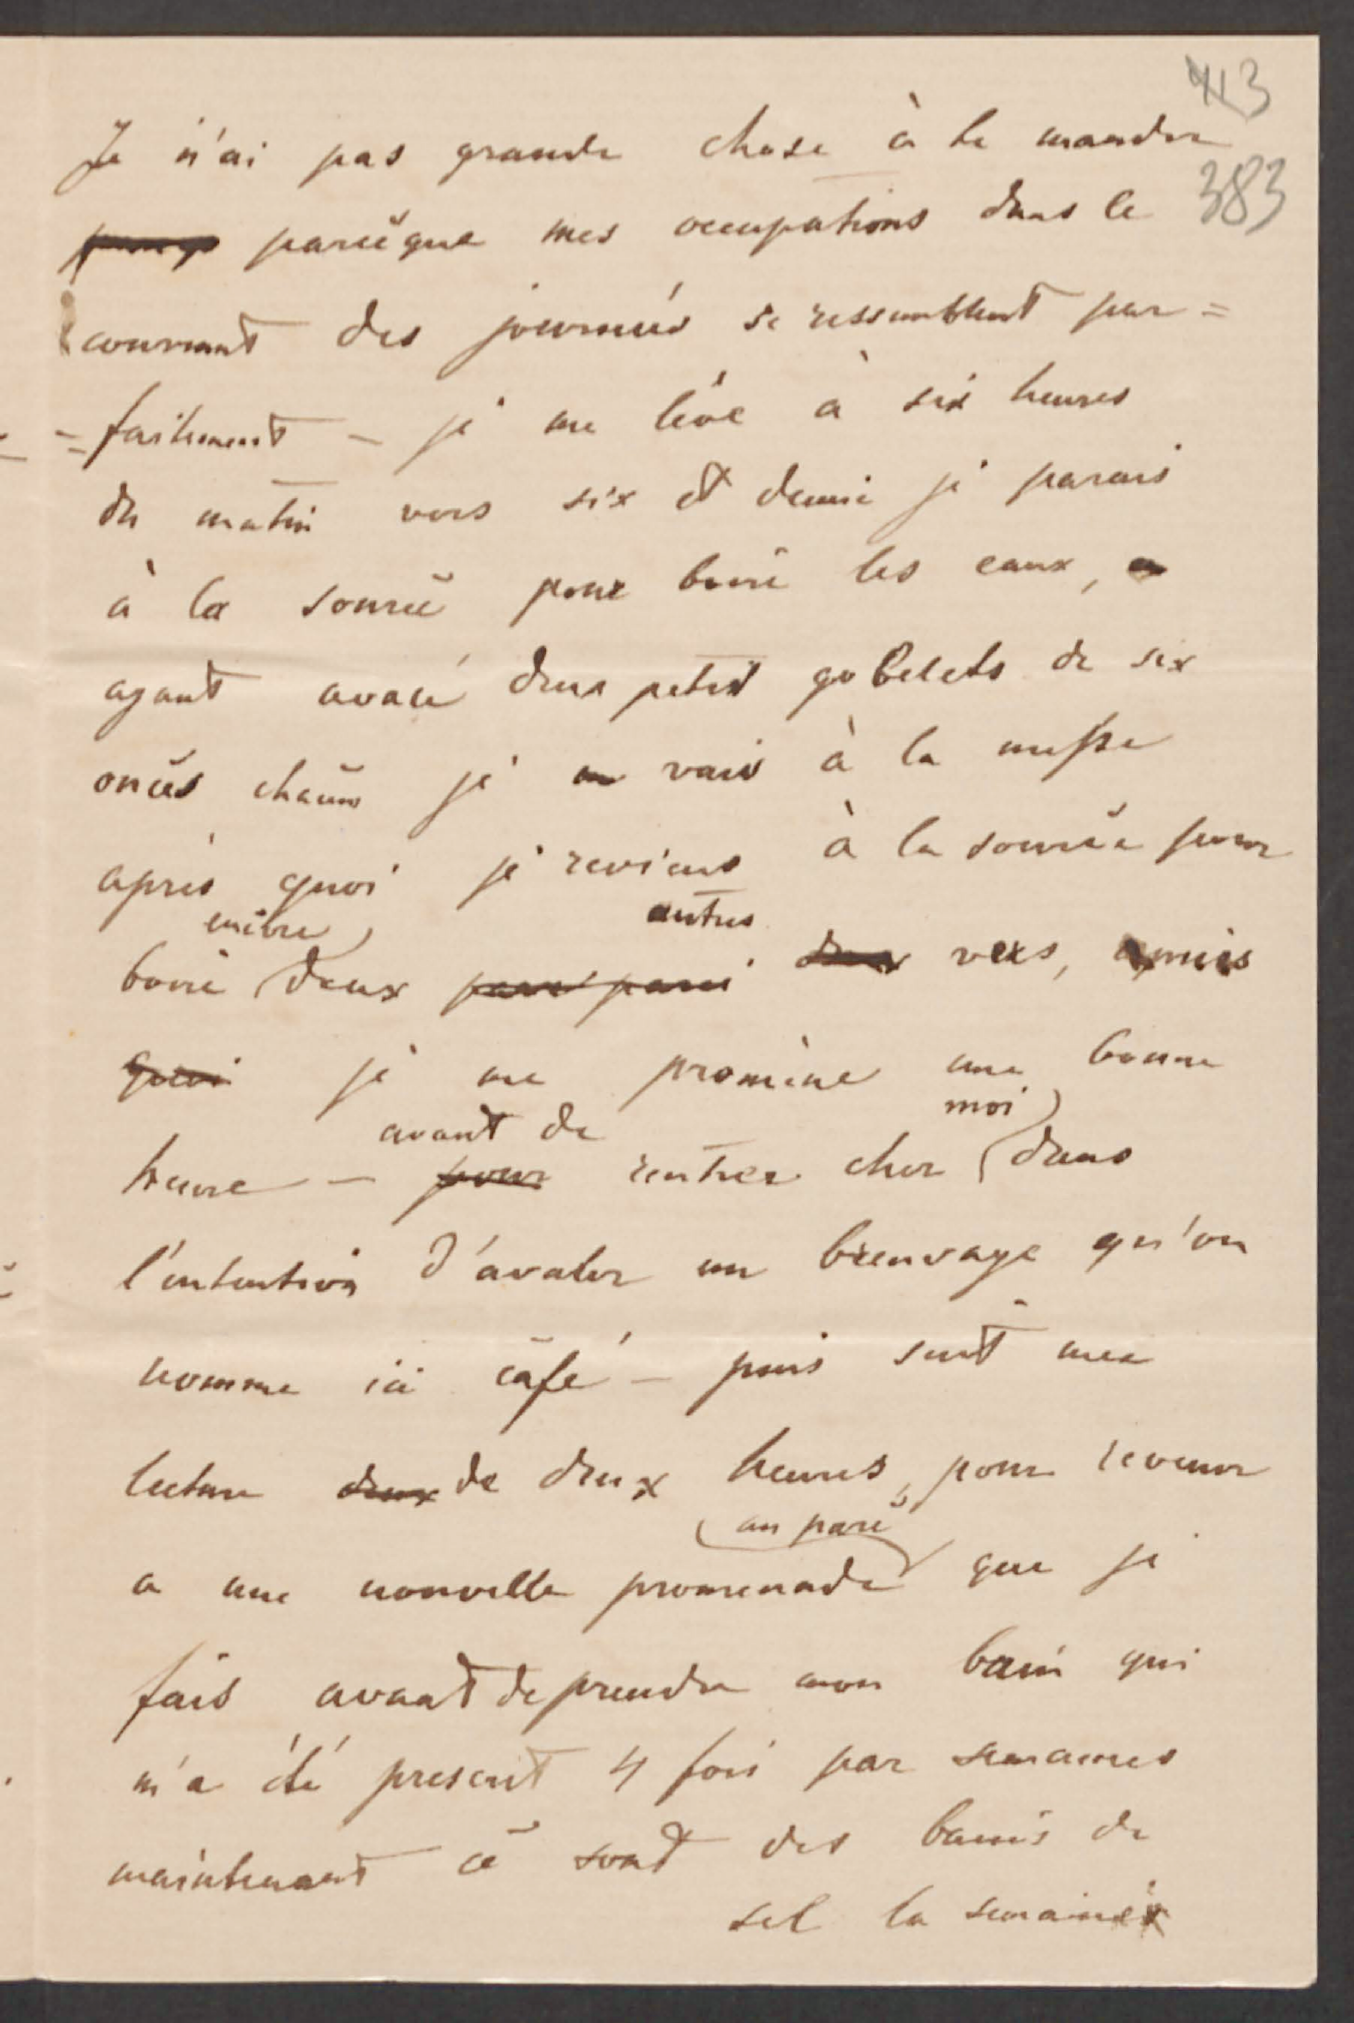 413
Je n'ai pas grande chose à te mander
383
parceque mes occupations dans le
courrant des journées se ressemblent par=
=faitement – je me lève à six heures
du matin vers six et demie je parais
à la source pour boire les eaux,
ayant avalé deux petits gobelets de six
onces chacun je vais à la messe
après quoi je reviens à la source pour
encore autres
boire deux deux vers, puis
quoi je me promène une bonne
avant de moi
heure – pour rentrer cher dans
l'intention d'avaler un breuvage qu'on
nomme ici café – puis suit une
lecture deux de deux heures, pour revenir
au parc
a une nouvelle promenade que je
fais avant de prendre mon bain qui
m'a été prescrit 4 fois par semaines
maintenant ce sont des bains de
sel la semaine